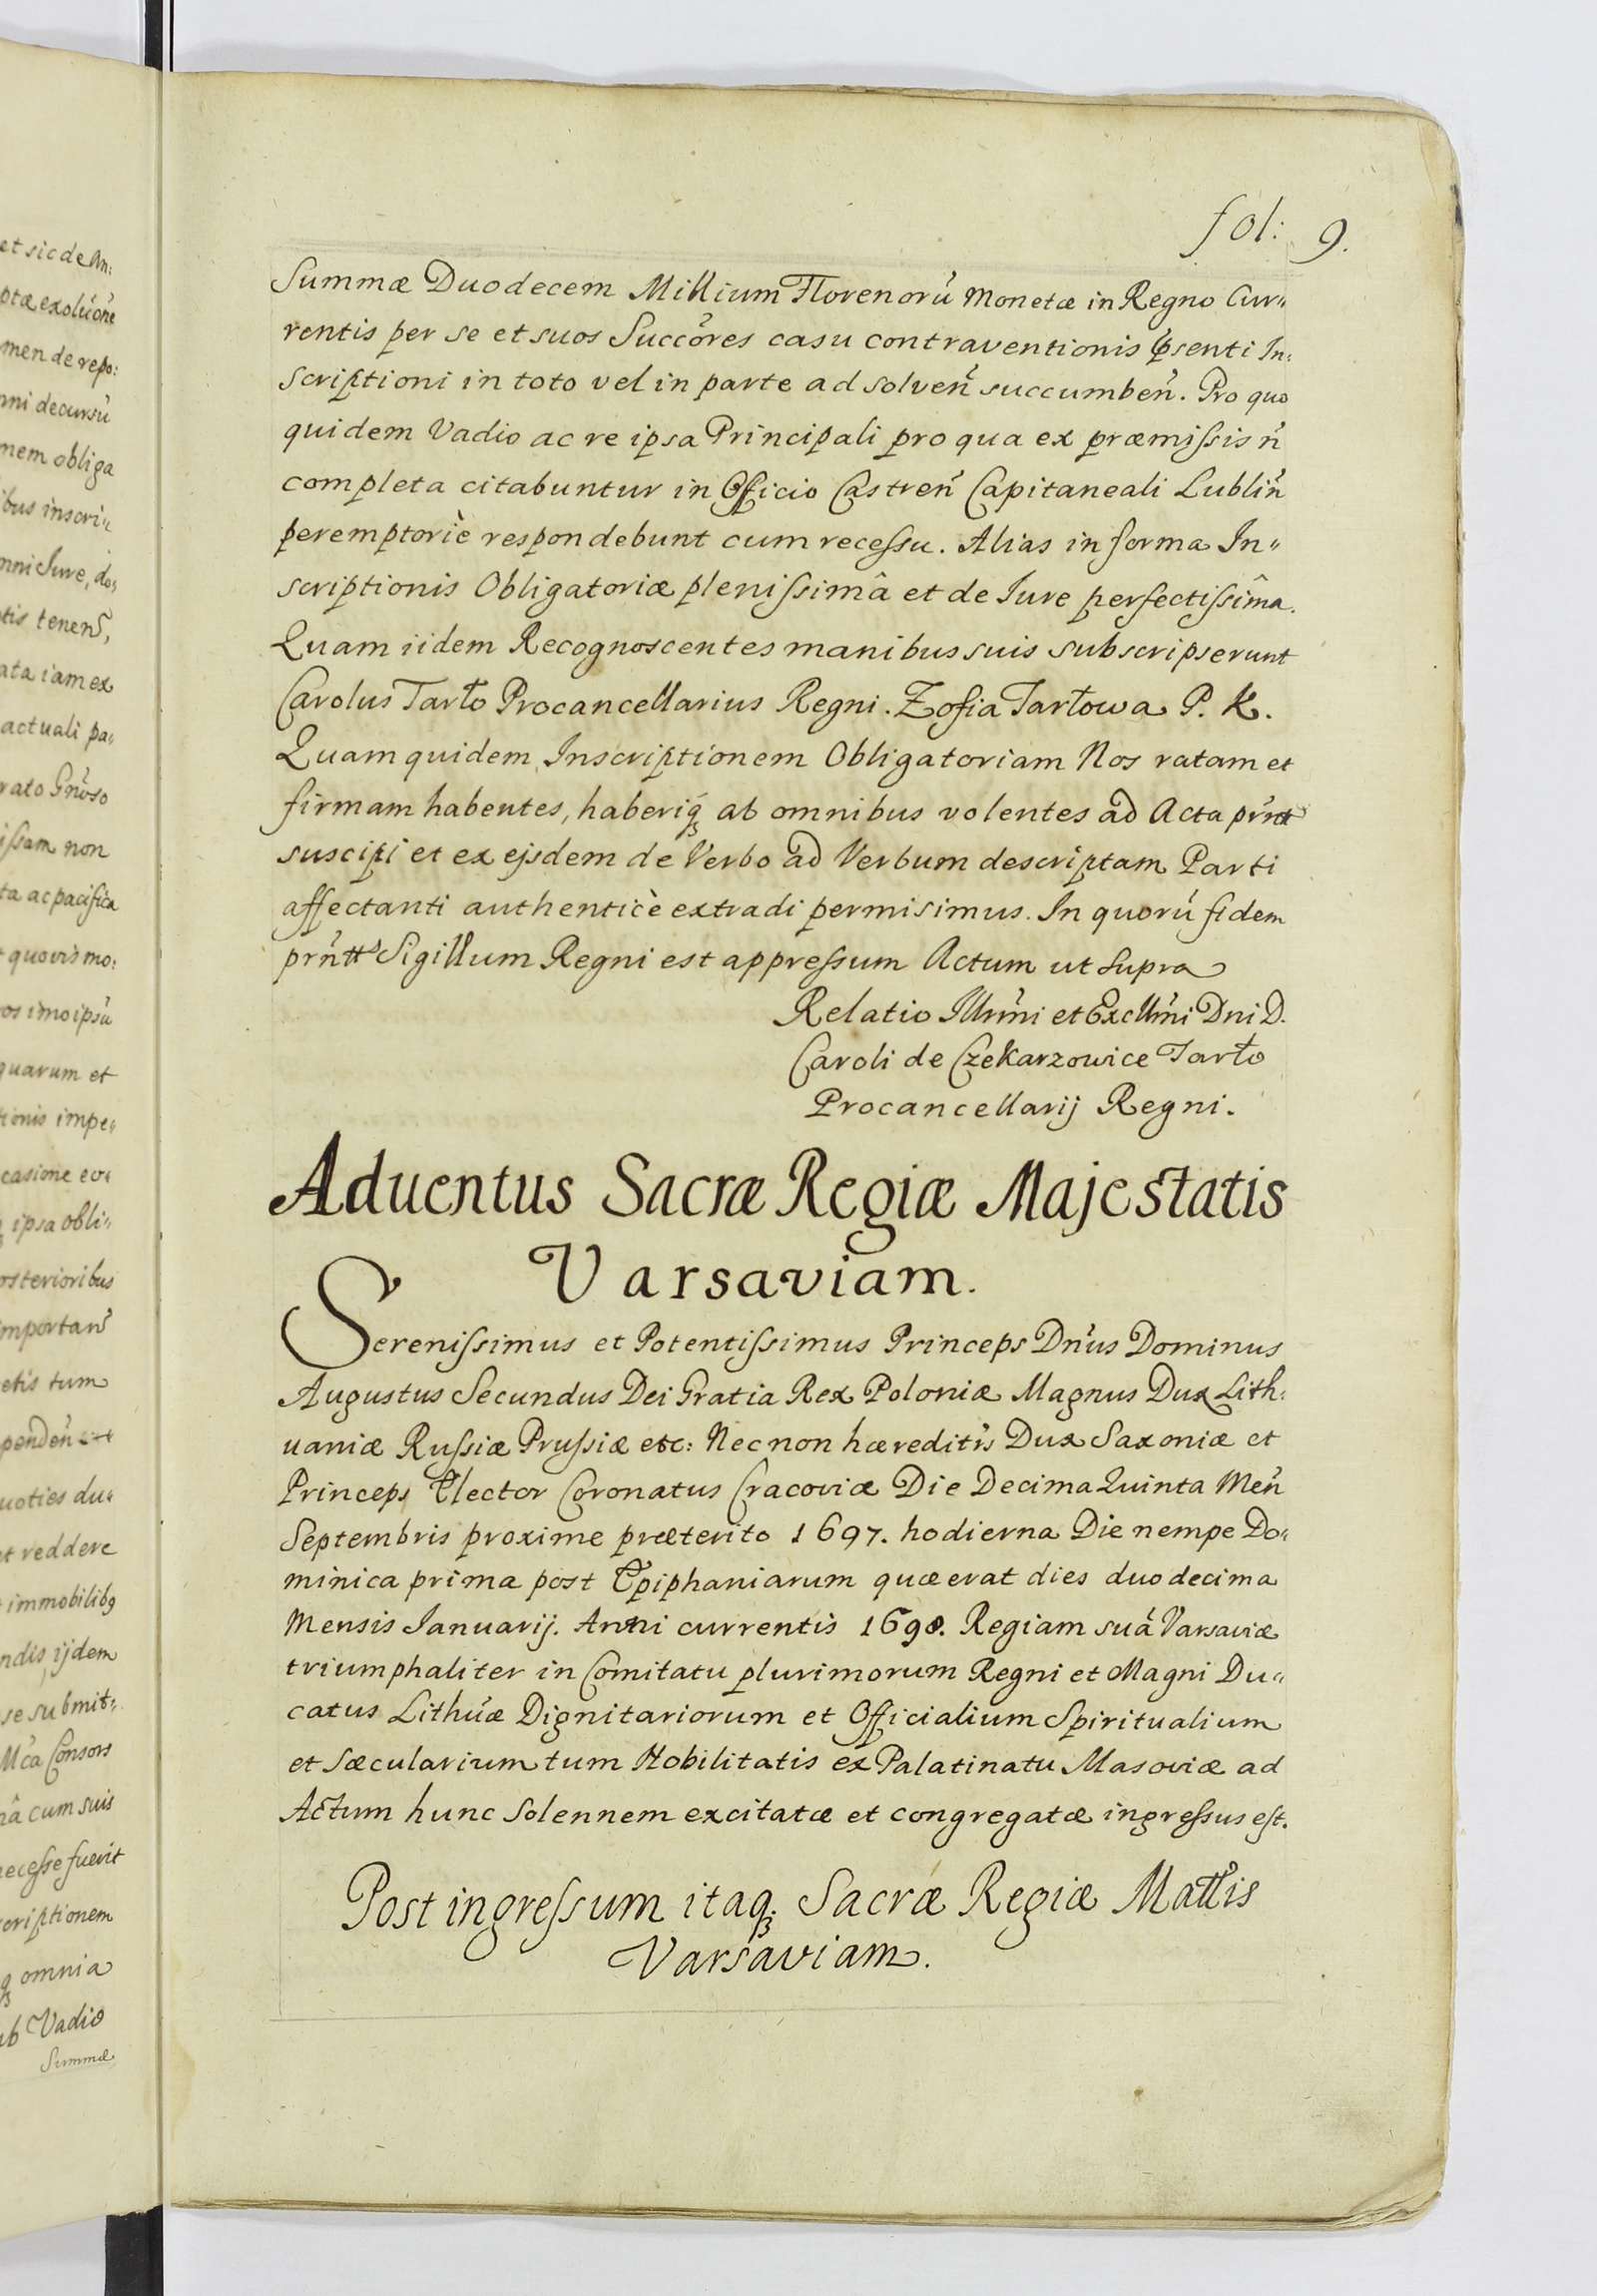 et sic de An:
ptæ exolúoñe
men de repo:
mni decursú
nem obliga
ibus inscri„
mni Iure, do„
tis tenen̄,
ata iam ex
actuali pa„
rato Gñoso
issam non
ta ac pacifica
t quovis mo:
os imo ipsú
quarum et
tionis impe„
casione eo„
ipsa obli„
osterioribus
importan̄
etis tum
penden̄
uoties du„
et reddere
immobilibꝯ
ndis, ijdem
se submit„
M'ca Consors
nâ cum suis
necesse fuerit
scriptionem
omnia
ub Vadio
Summæ
fol: 9.
Summæ Duodecem Millium Florenorú Monetæ in Regno Cur„
rentis per se et suos Succ̃ores casu contraventionis ꝓsenti In:
scriptioni in toto vel in parte ad solven̄ succumben̄. Pro quo
quidem Vadio ac re ipsa Principali pro qua ex præmissis ñ
completa citabuntur in Officio Castren̄ Capitaneali Lublin̄
peremptoriè respondebunt cum recessu. Alias in forma In„
scriptionis Obligatoriæ plenissimâ et de Iure perfectissîma.
Quam iidem Recognoscentes manibus suis subscripserunt
Carolus Tarło Procancellarius Regni. Zofia Tarłowa P. K.
Quam quidem Inscriptionem Obligatoriam Nos ratam et
firmam habentes, haberiqꝫ ab omnibus volentes ad Acta prñt
suscipi et ex ejsdem de Verbo ad Verbum descriptam Parti
affectanti authenticè extradi permisimus. In quorú fidem
prñtt Sigillum Regni est appressum Actum ut Supra
Relatio Illrm̃i et Excllm̃i Dni D.
Caroli de Czekarzowice Tarło
Procancellarij Regni.
Aduentus Sacræ Regiæ Majestatis
Varsaviam.
Serenissimus et Potentissimus Princeps Dñus Dominus
Augustus Secundus Dei Gratia Rex Poloniæ Magnus Dux Lith:
uaniæ Russiæ Prussiæ etc: Nec non hæreditr̃s Dux Saxoniæ et
Princeps Elector Coronatus Cracoviæ Die Decima Quinta Men̄
Septembris proxime præterito 1697. hodierna Die nempe Do„
minica prima post Epiphaniarum quæ erat dies duodecima
Mensis Ianuarij. Anni currentis 1698. Regiam suá Varsaviæ
triumphaliter in Comitatu plurimorum Regni et Magni Du„
catus Lithúæ Dignitariorum et Officialium Spiritualium
et Sæcularium tum Nobilitatis ex Palatinatu Masoviæ ad
Actum hunc Solennem excitatæ et congregatæ ingressus est.
Post ingressum itaqꝫ Sacræ Regiæ Mattis
Varsaviam.